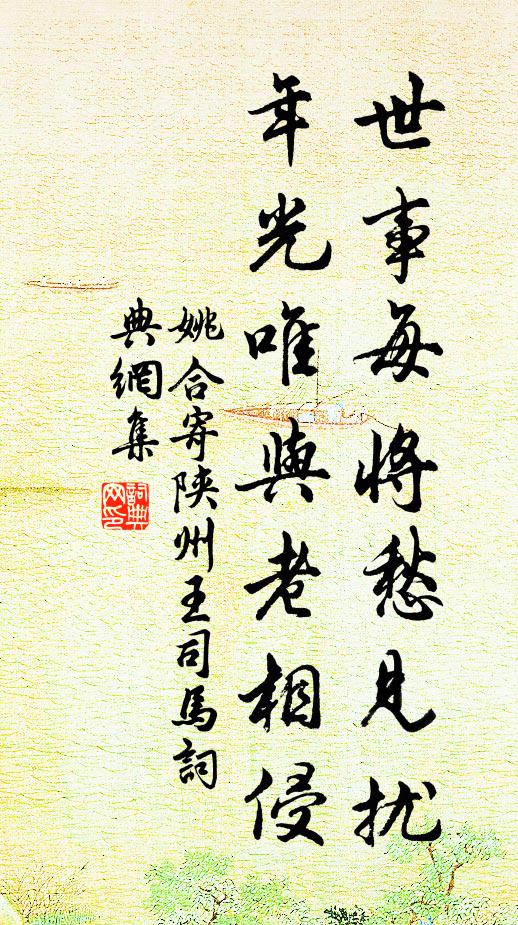 世事每將愁見扰
年光唯與老相侵
姚合寄陕州王司馬詞
典網集
詞典
网印